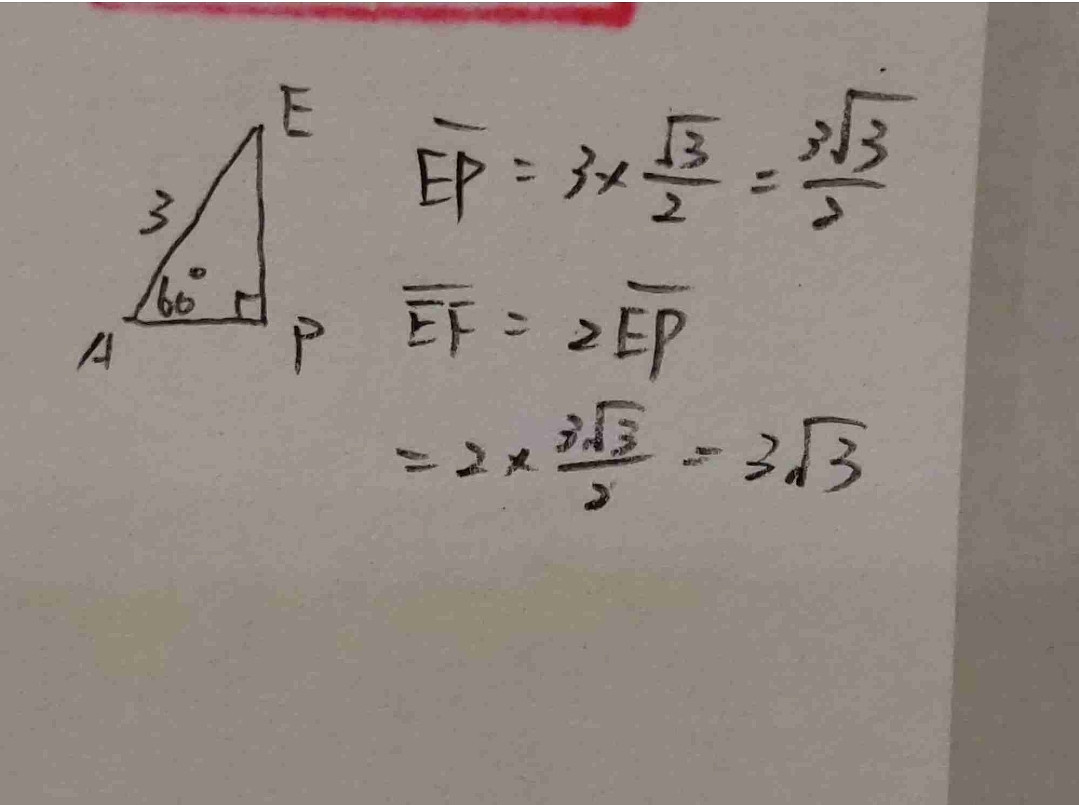 E
3
60°
A
P
EP = 3 × √3/2 = 3√3/2
EF = 2EP
= 2 × 3√3/2 = 3√3